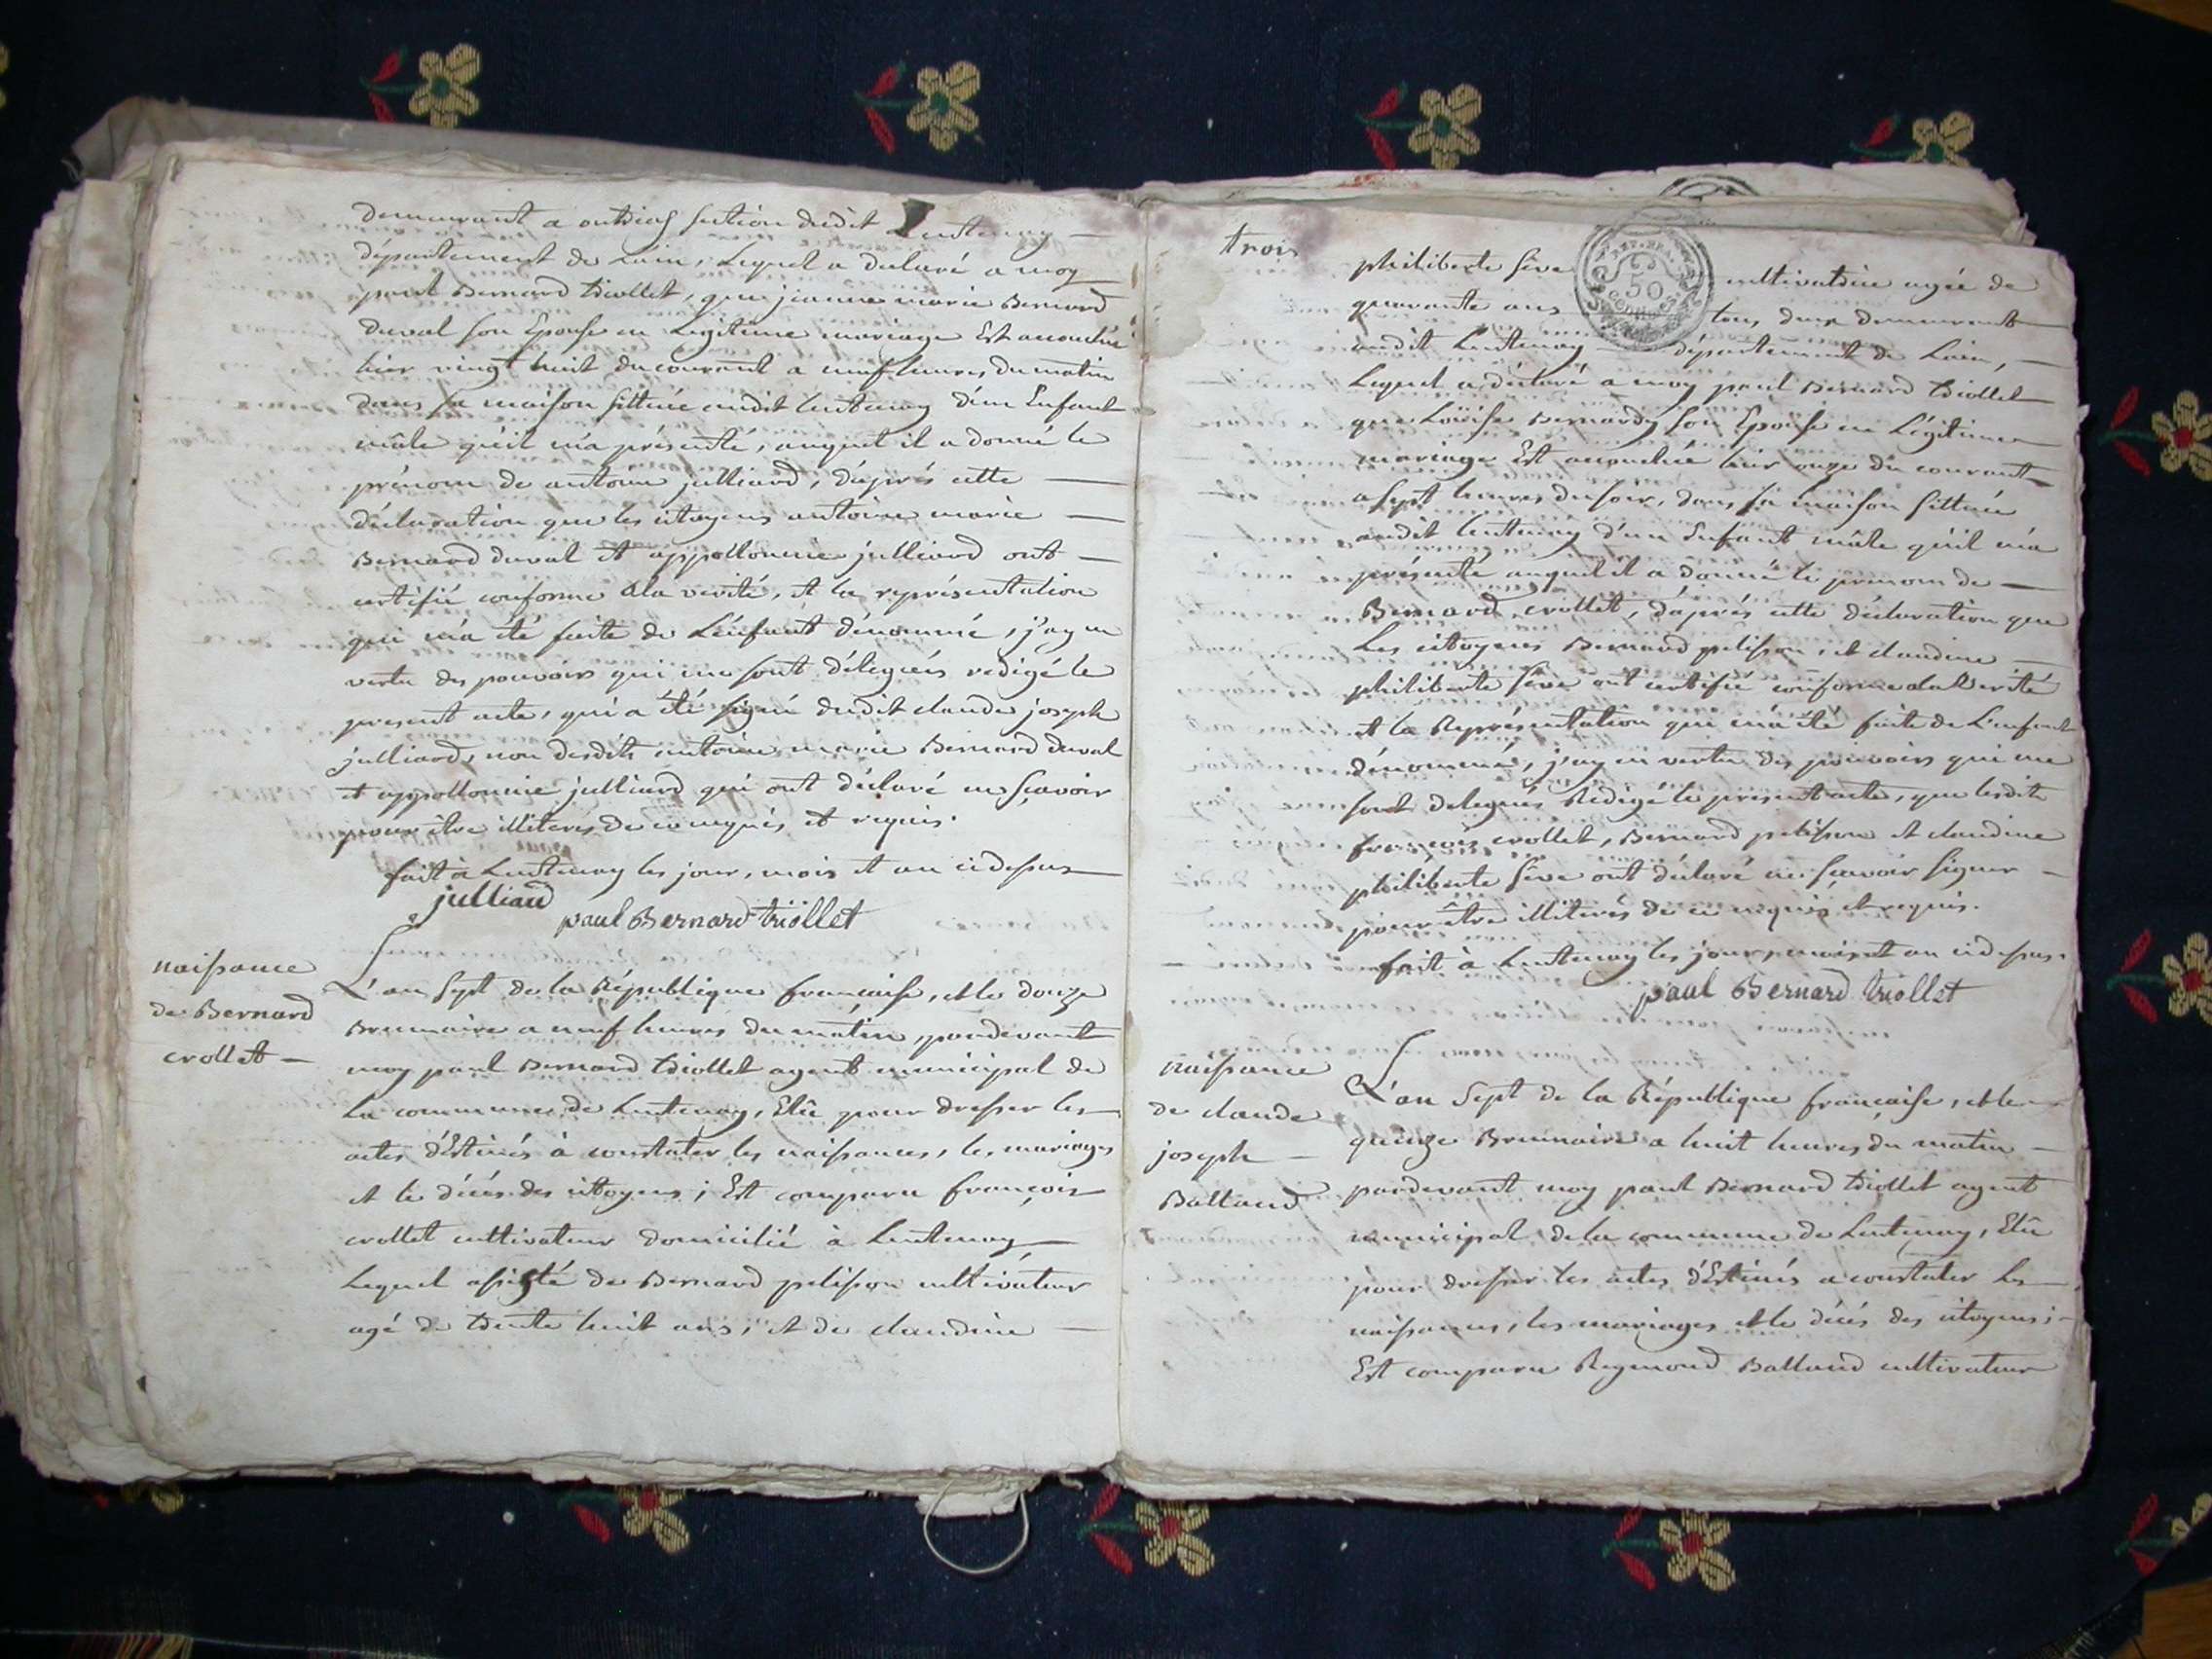 demeurant a outriaz section dudit Lentenay
département de Lain, Lequel a declaré a moy
paul Bernard triollet, que jeanne marie Bernard
duval son Epouse en Legitime mariage Est accouchée
hier vingt huit du courant a neuf heures du matin
dans sa maison sittuée audit lentenay d'un Enfant
mâle qu'il m'a présenté, auquel il a donné le
prénom de antoine julliard, d'après cette
déclaration que les citoyens antoine marie
Bernard duval et appollonnie julliard ont
certifié conforme a la verité, et la représentation
qui m'a été faite de L'enfant dénommé, j'ay en
vertu des pouvoirs qui me sont délegués redigé le
present acte, qui a été signé dudit claude joseph
julliard, non desdits antoine marie Bernard duval
et appollonnie julliard qui ont déclaré ne sçavoir
pour être illiterés de ce enquis et requis.
fait à Lentenay les jour, mois et an cidessus
julliard
paul Bernard triollet
naissance
de Bernard
crollet
L'an sept de la République française, et le douze
Brumaire a neuf heures du matin, pardevant
moy paul Bernard triollet agent municipal de
La commune de Lentenay, Elû pour dresser les
actes d'Estinés à constater les naissances, les mariages
et le décés des citoyens; Est comparu françois
crollet cultivateur domicilié à Lentenay
Lequel assisté de Bernard pelisson cultivateur
agé de trente huit ans, et de claudine
trois
philiberte sève cultivatrice agée de
quarante ans tous deux demeurant
audit Lentenay département de Lain,
Lequel a déclaré a moy paul Bernard triollet
que Loüise Bernardy son Epouse en Légitime
mariage Est accouchée hier onze du courant
a sept heures du soir, dans sa maison sittuée
audit lentenay d'un Enfant mâle qu'il m'a
présenté auquel il a donné le prenom de
Bernard crollet, d'après cette déclaration que
Les citoyens Bernard pelisson, et claudine
philiberte sève ont certifié conforme a la Verité
et la Représentation qui m'a été faite de L'enfant
dénommé, j'ay en vertu des pouvoirs qui me
sont delegués Rédigé le present acte, que lesdits
françois crollet, Bernard pelisson et claudine
philiberte sève ont déclaré ne sçavoir signer
pour être illiterés de ce enquis et requis.
fait à Lentenay les jour, mois et an cidessus.
paul Bernard triollet
naissance
de claude
joseph
Balland
L'an sept de la République française, et le
quinze Brumaire a huit heures du matin
pardevant moy paul Bernard triollet agent
municipal de la commune de Lentenay, Elû
pour dresser les actes d'Estinés a constater les
naissances, les mariages et le décés des citoyens;
Est comparu Reymond Balland cultivateur